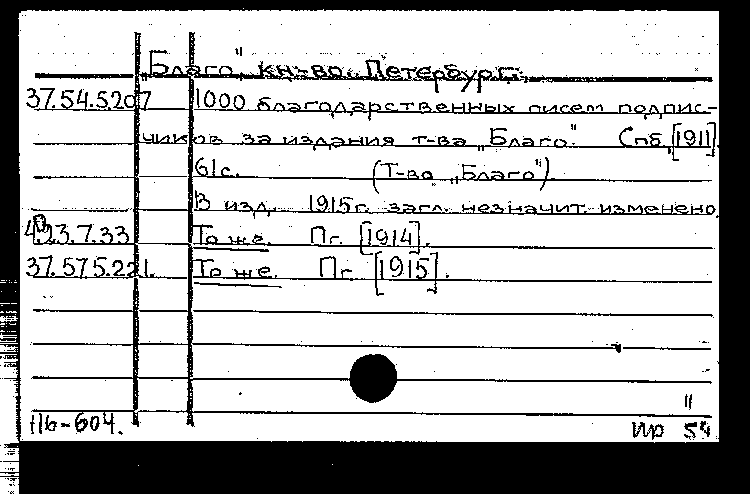 „Благо", кн-во. Петербург.
37.54.5.207 1000 благодарственных писем подпис-
чиков за издания т-ва „Благо". Спб, [1911].
61с. (Т-во „Благо").
В изд. 1915г. загл. незначит. изменено.
23.7.33 То же. Пг. [1914].
37.57.5.221. То же. Пг. [1915].
Пб-604.
54